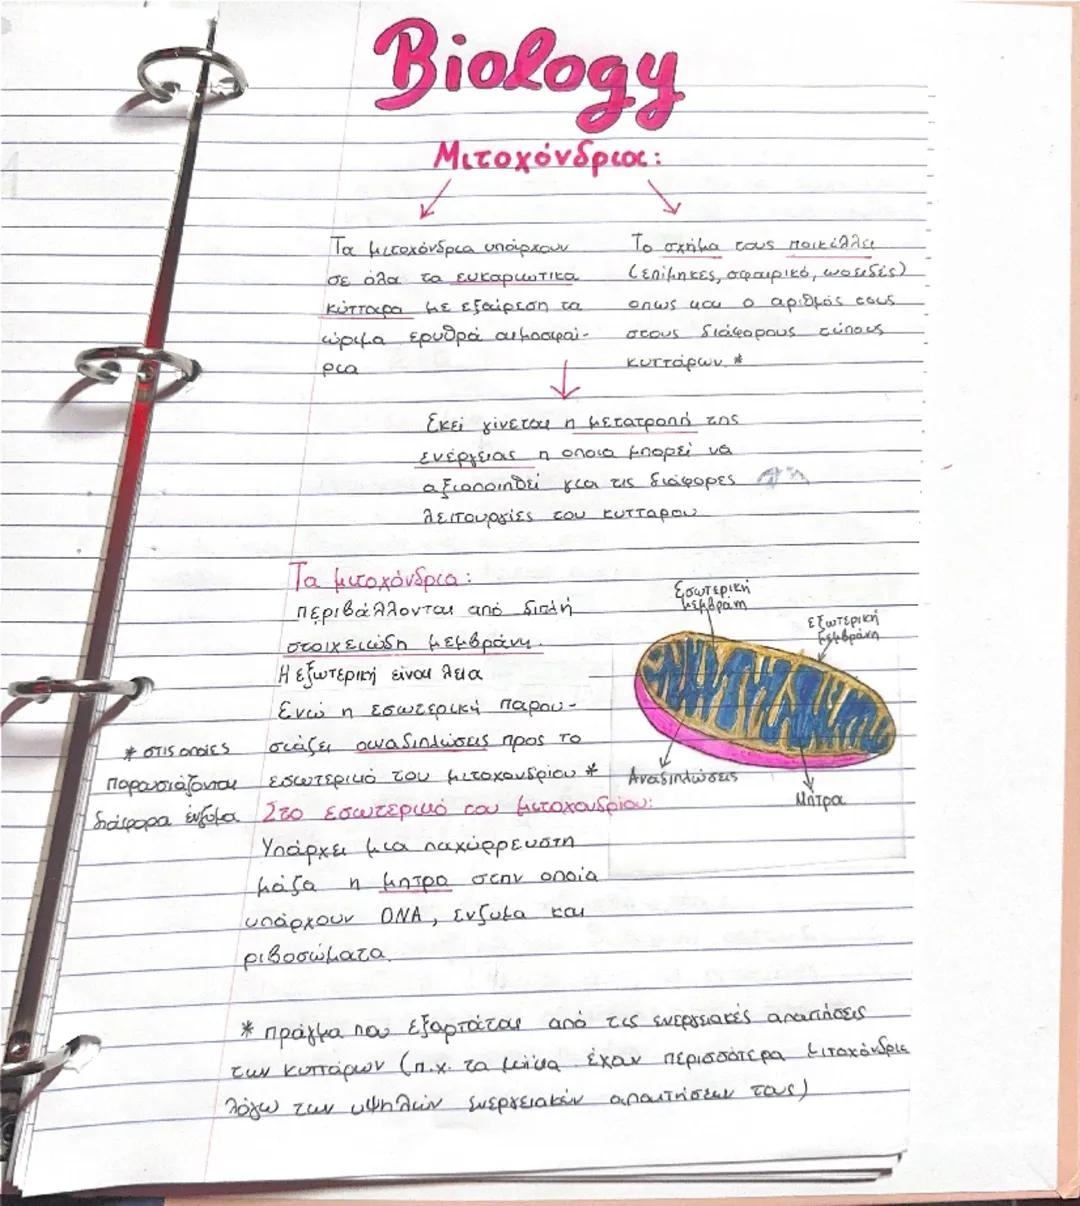 Biology
Μιτοχόνδρια:
Τα μιτοχόνδρια υπάρχουν
σε όλα τα ευκαριωτικα
κύτταρα με εξαίρεση τα
ώριμα ερυθρά αιμοσφαί-
ρια
Το σχήμα τους ποικίλλει
(επίμηκες, σφαιρικό, ωοειδές)
οπως και ο αριθμός τους
στους διάφορους τύπους
κυττάρων *
Εκεί γίνεται η μετατροπή της
ενέργειας η οποια μπορεί να
αξιοποιηθεί για τις διάφορες
λειτουργίες του κυτταρου
Τα μιτοχόνδρια:
περιβάλλονται από διπλή
στοιχειώδη μεμβράνη.
Η εξωτερική είναι λεια
Ενώ η εσωτερική παρου-
σιάζει αναδιπλώσεις προς το
εσωτερικό του μιτοχονδρίου *
* στις οποίες
παρουσιάζονται
διάφορα ένζυμα
Εσωτερική
μεμβράνη
εξωτερική
μεμβράνη
Αναδιπλώσεις
Μήτρα
Στο εσωτερικό του μιτοχονδρίου:
Υπάρχει μια παχύρρευστη
μάζα η μητρα στην οποία
υπάρχουν DNA, ένζυμα και
ριβοσώματα.
* πράγμα που εξαρτάται από τις ενεργειακές απαιτήσεις
των κυττάρων (π.χ. τα μϋικα έχουν περισσότερα μιτοχόνδρια
λόγω των υψηλών ενεργειακών απαιτήσεων τους)